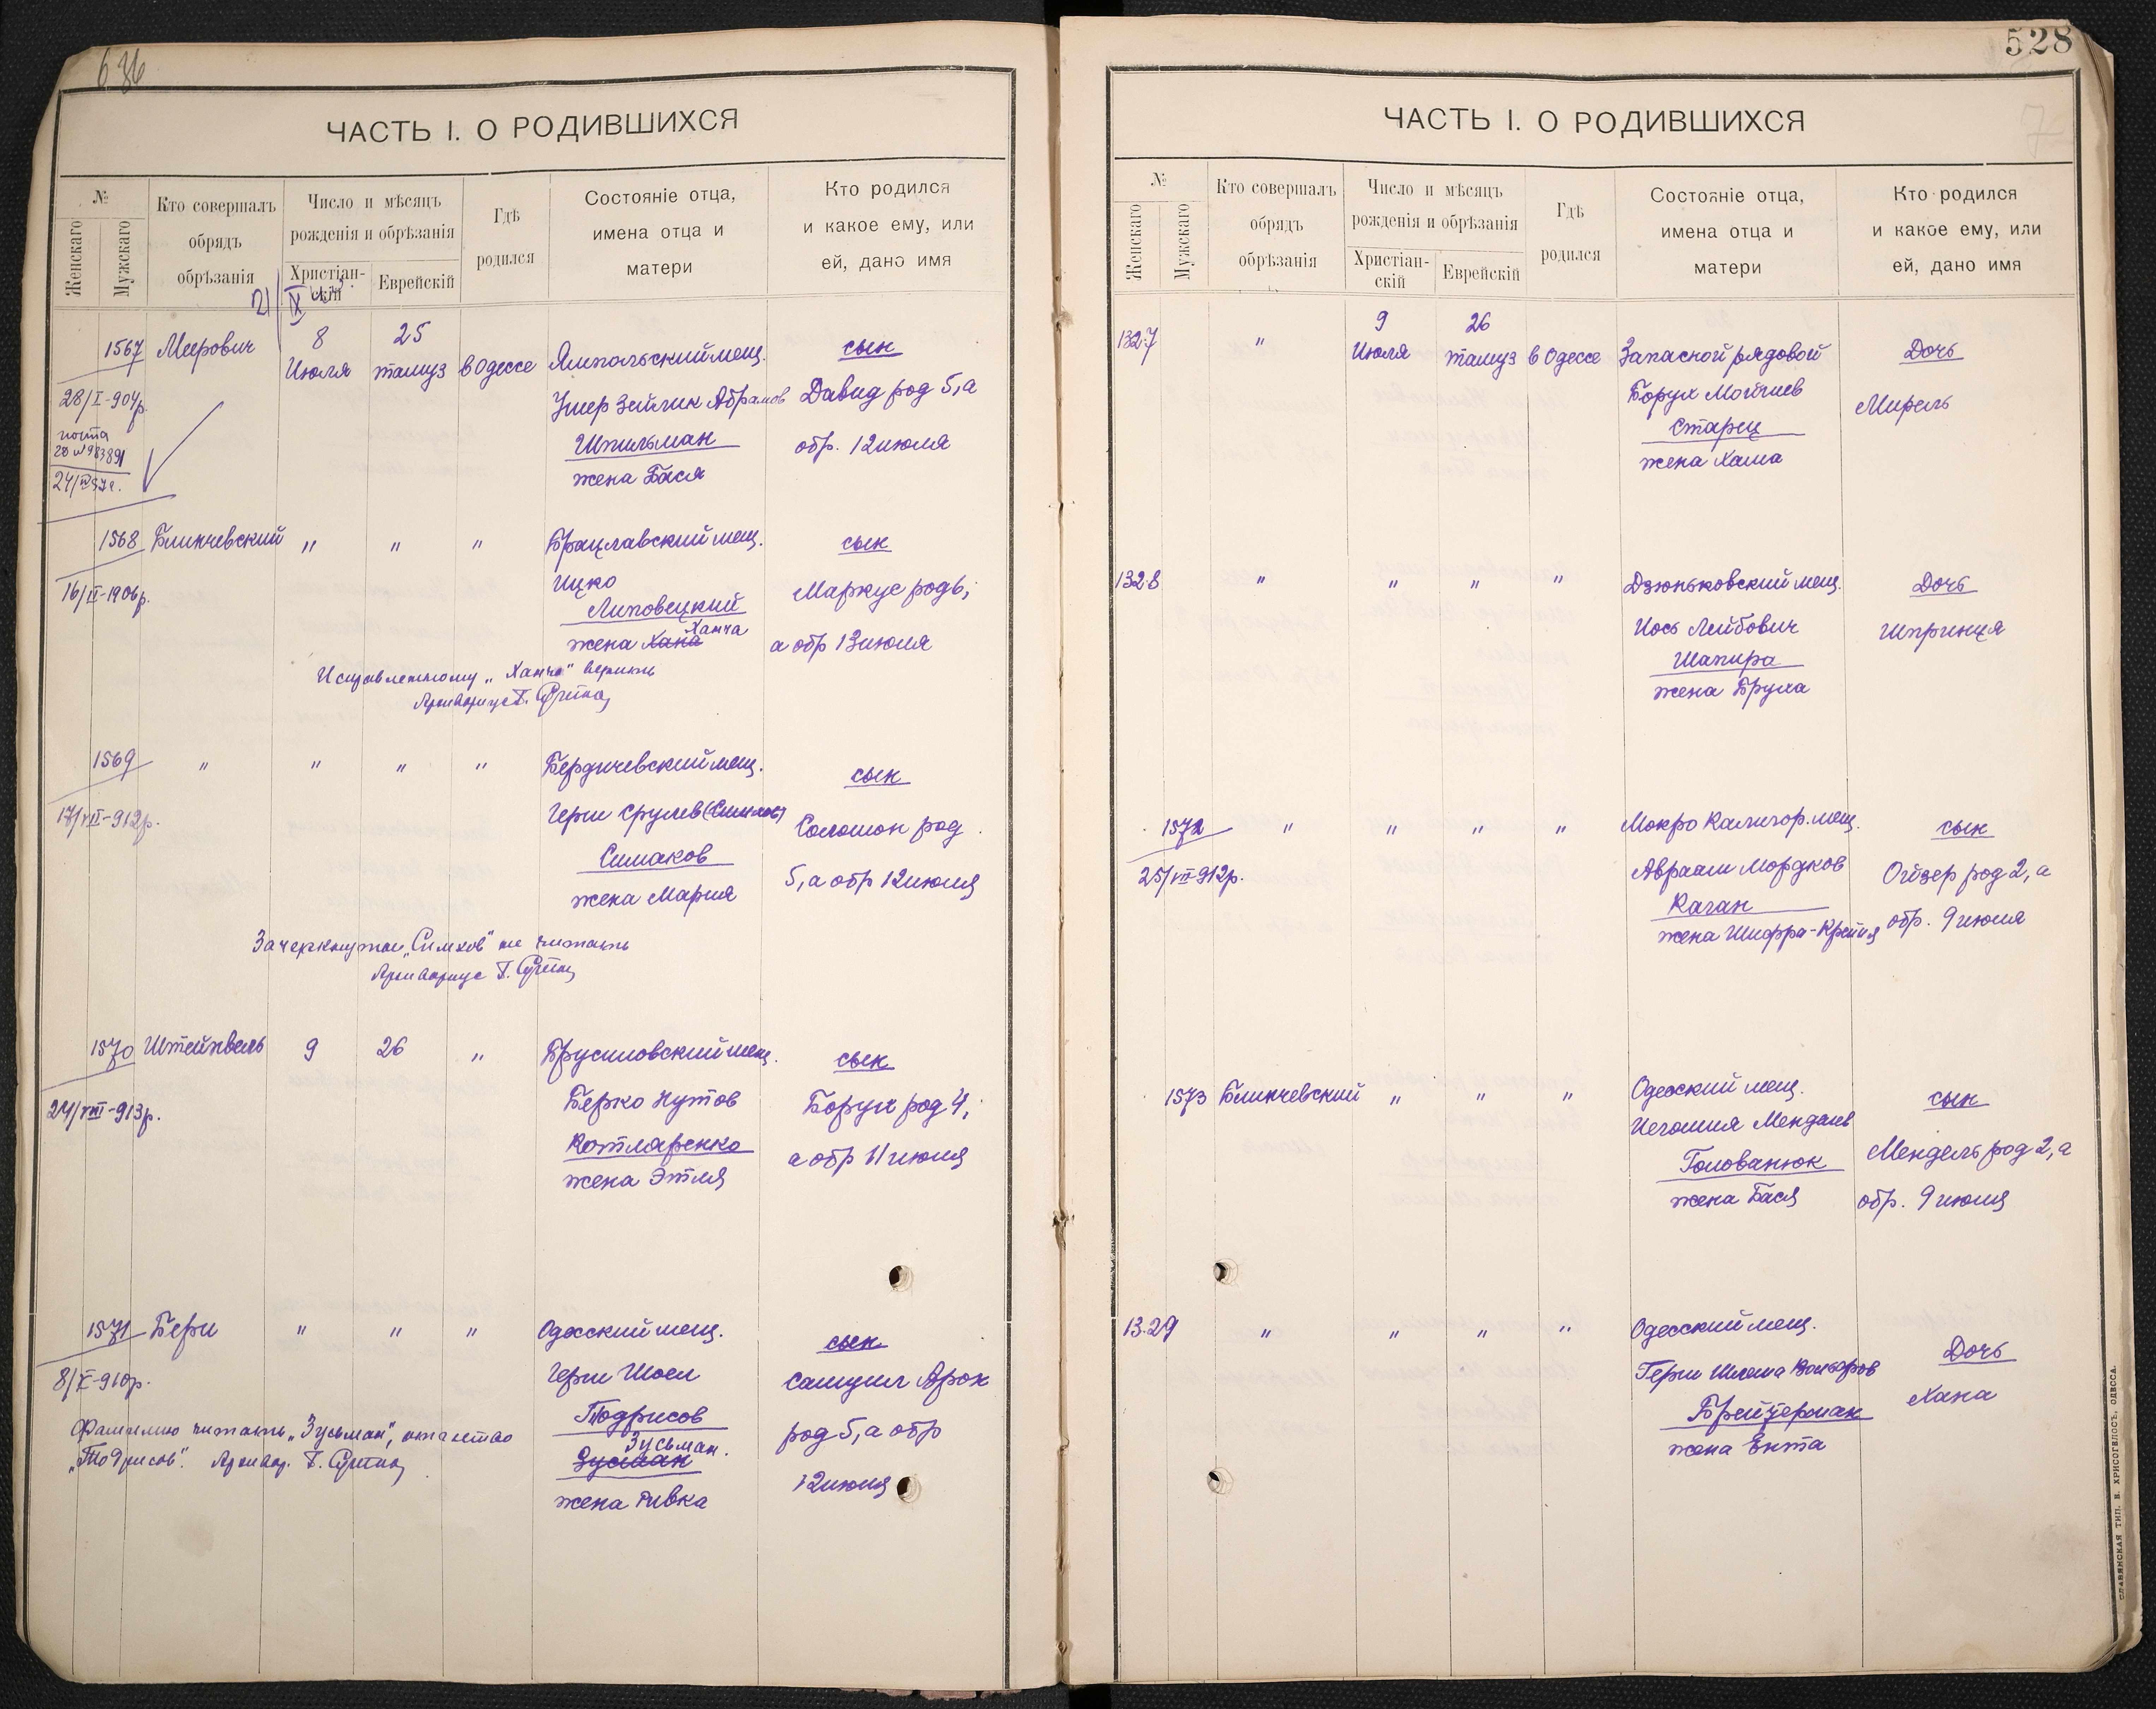 636
ЧАСТЬ I. О РОДИВШИХСЯ
№
Женскаго
Мужскаго
Кто совершалъ
обрядъ
обрѣзанія
Число и мѣсяцъ
рожденія и обрѣзанія
Христіан-
скій
Еврейскій
Гдѣ
родился
Состояніе отца,
имена отца и
матери
Кто родился
и какое ему, или
ей, дано имя
1567 Меерович 8 Июля 25 тамуз в Одессе Ямпольский мещ. сын
28/I-904р.
Ушер Зейлик Абрамов Давид род 5, а
Шпильман обр. 12 июля
жена Бася
1568 Блинчевский " " " Брацлавский мещ. сын
16/II-1906р.
Ицко Маркус род 6,
Липовецкий
Ханча
жена Хана а обр 13 июля
Исправленному „Ханча" верить
Архивариус
1569 " " " " Бердичевский мещ. сын
17/VII-912р.
Герш Срулев (Симхов) Соломон род
Симаков
жена Мария 5, а обр 12 июля
Зачеркнутое „Симхов" не читать
Архивариус
1570 Штейнвель 9 26 " Брусиловский мещ. сын
24/VIII-913р.
Берко Нутов Борух род 4,
Котляренко
жена Этля а обр 11 июля
1571 Бери " " " Одесский мещ. сын
8/X-910р.
Герш Шоел Самуил Арон
Тодрисов род 5, а обр
Зусьман.
Зусман
жена Ривка 12 июля
Фамилию читать „Зусьман", отчество
„Тодрисов". Архивар.
528
ЧАСТЬ I. О РОДИВШИХСЯ
№
Женскаго
Мужскаго
Кто совершалъ
обрядъ
обрѣзанія
Число и мѣсяцъ
рожденія и обрѣзанія
Христіан-
скій
Еврейскій
Гдѣ
родился
Состояніе отца,
имена отца и
матери
Кто родился
и какое ему, или
ей, дано имя
1327 " 9 Июля 26 тамуз в Одессе Запасной рядовой Дочь
Борух Мойшев Мирель
Старец
жена Хама
1328 " " " " Дзюньковский мещ. Дочь
Иось Лейбович Шпринця
Шапира
жена Бруха
1572 " " " " Мокро Калигор. мещ. сын
25/VII-912р.
Авраам Мордков Ойзер род 2, а
Каган
жена Шифра-Крейня обр. 9 июля
1573 Блинчевский " " " Одесский мещ. сын
Иегошия Менделев
Голованюк Мендель род 2, а
жена Бася обр. 9 июля
1329 " " " " Одесский мещ. Дочь
Герш Шлема Вольфов
Брейтерман Хана
жена Ента
СЛАВЯНСКАЯ ТИП. Н. ХРИСОГЕЛОСЪ, ОДЕССА.